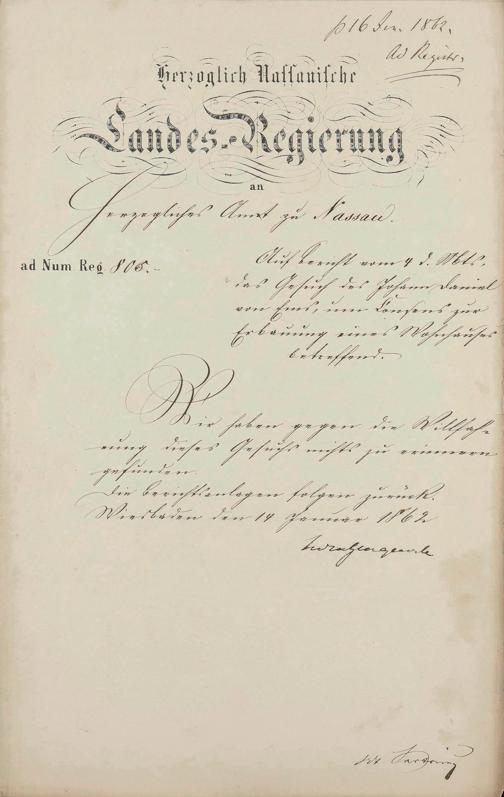 16 Jan. 1862.
Ad Registr.
Herzoglich Nassauische
Landes-Regierung
an
Herzogliches Amt zu Nassau.
ad Num Reg 805.
Auf Bericht vom 4 d. Mts.
das Gesuch des Johann Daniel
von Ems, um Consens zur
Erbauung eines Wohnhauses
betreffend.
Wir haben gegen die Willfah-
rung dieses Gesuchs nichts zu erinnern
gefunden.
Die Berichtsanlagen folgen zurück.
Wiesbaden den 14 Januar 1862